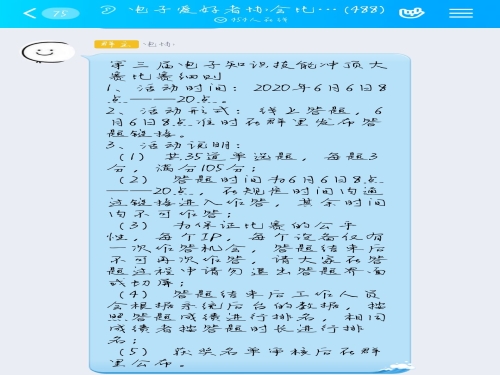 75
电子爱好者协会比…(488)
群主 电协
第三届电子知识技能冲顶大
赛比赛细则
1、活动时间：2020年6月6日8
点——20点。
2、活动形式：线上答题，6
月6日8点准时在群里发布答
题链接。
3、活动说明：
（1） 共35道单选题，每题3
分，满分105分；
（2） 答题时间为6月6日8点
——20点，在规定时间内通
过链接进入作答，其余时间
内不可作答；
（3） 为保证比赛的公平
性，每个IP，每个设备仅有
一次作答机会，答题结束后
不可再次作答，请大家在答
题过程中请勿退出答题界面
或切屏；
（4） 答题结束后工作人员
会根据系统后台的数据，按
照答题成绩进行排名，相同
成绩者按答题时长进行排
名；
（5） 获奖名单审核后在群
里公布。